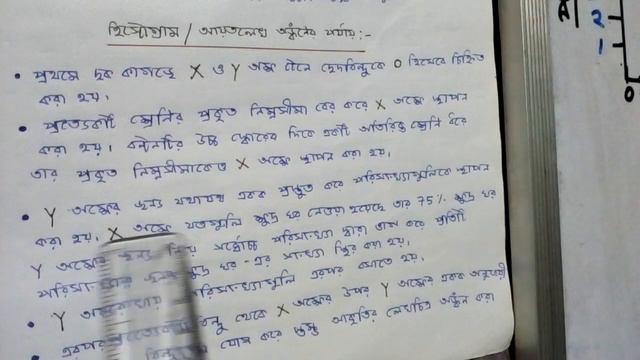 হিস্টোগ্রাম / আয়তলেখ অঙ্কনের পর্যায় :-
• প্রথমে ছক কাগজে X ও Y অক্ষ টেনে ছেদবিন্দুকে 0 হিসেবে চিহ্নিত
করা হয়।
• প্রত্যেকটি শ্রেণির প্রকৃত নিম্নসীমা বের করে X অক্ষে স্থাপন
করা হয়। বন্টনটির উচ্চ স্কোরের দিকে একটি অতিরিক্ত শ্রেণি ধরে
তার প্রকৃত নিম্নসীমাকেও X অক্ষে স্থাপন করা হয়।
• Y অক্ষের জন্য যথাযথ একক প্রস্তুত করে পরিসংখ্যাগুলিকে স্থাপন
করা হয়। X অক্ষে যতগুলি ক্ষুদ্র ঘর নেওয়া হয়েছে তার 75% ক্ষুদ্র ঘর
Y অক্ষের জন্য নিয়ে সর্বোচ্চ পরিসংখ্যা দ্বারা ভাগ করে প্রতিটি
পরিসংখ্যার জন্য ক্ষুদ্র ঘর-এর সংখ্যা স্থির করা হয়।
• Y অক্ষ পরিসংখ্যাগুলি এরপর বসাতে হয়।
এরপর প্রত্যেকটি বিন্দু থেকে X অক্ষের উপর Y অক্ষের একক অনুযায়ী
বিন্দু যোগ করে স্তম্ভ আকৃতির লেখচিত্র অঙ্কন করা
2
1
0